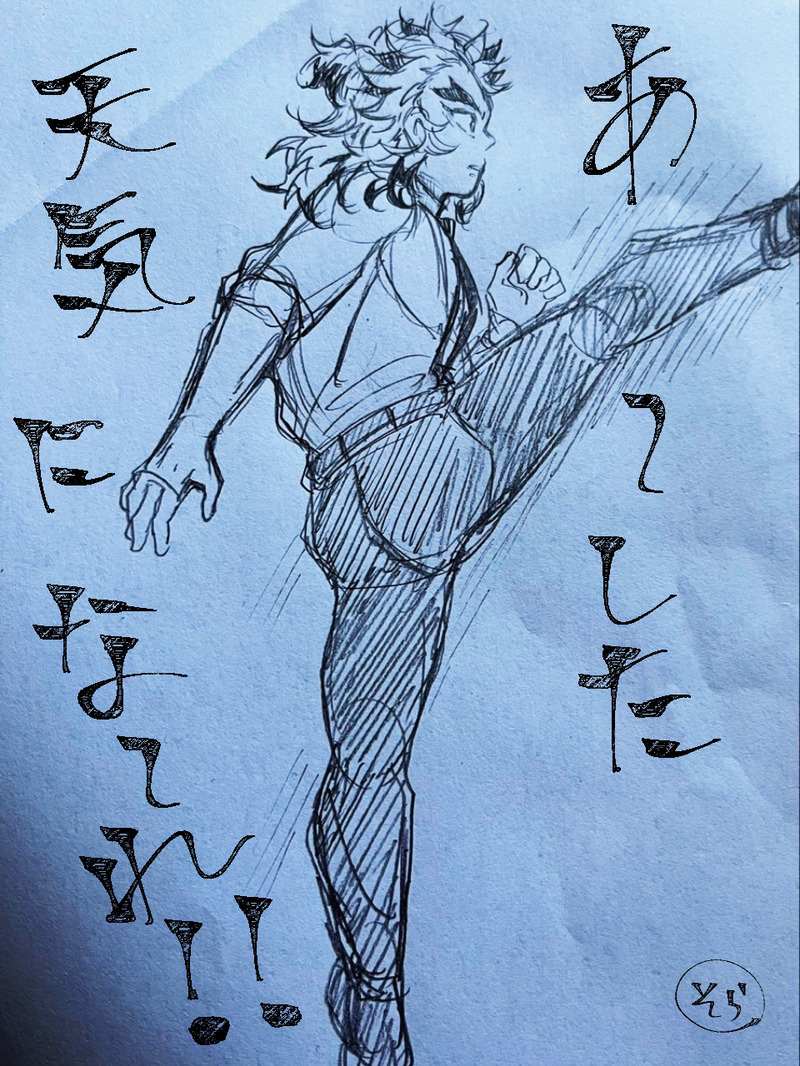 あーした
天気になーれ!!
そら